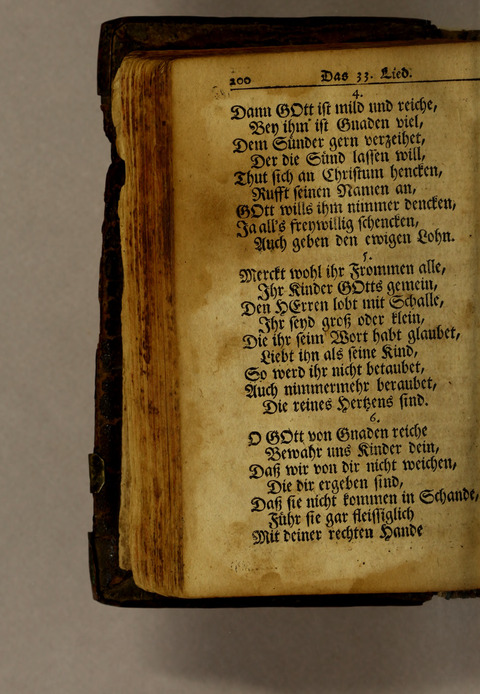 200 Das 33. Lied.
4.
Dann GOtt ist mild und reiche,
Bey ihm ist Gnaden viel,
Dem Sünder gern verzeihet,
Der die Sünd lassen will,
Thut sich an Christum hencken,
Rufft seinen Namen an,
GOtt wills ihm nimmer dencken,
Ja all's freywillig schencken,
Auch geben den ewigen Lohn.
5.
Merckt wohl ihr Frommen alle,
Ihr Kinder GOtts gemein,
Den HErren lobt mit Schalle,
Ihr seyd groß oder klein,
Die ihr seim Wort habt glaubet,
Liebt ihn als seine Kind,
So werd ihr nicht betaubet,
Auch nimmermehr beraubet,
Die reines Hertzens sind.
6.
O GOtt von Gnaden reiche
Bewahr uns Kinder dein,
Daß wir von dir nicht weichen,
Die dir ergeben sind,
Daß sie nicht kommen in Schande,
Führ sie gar fleissiglich
Mit deiner rechten Hande